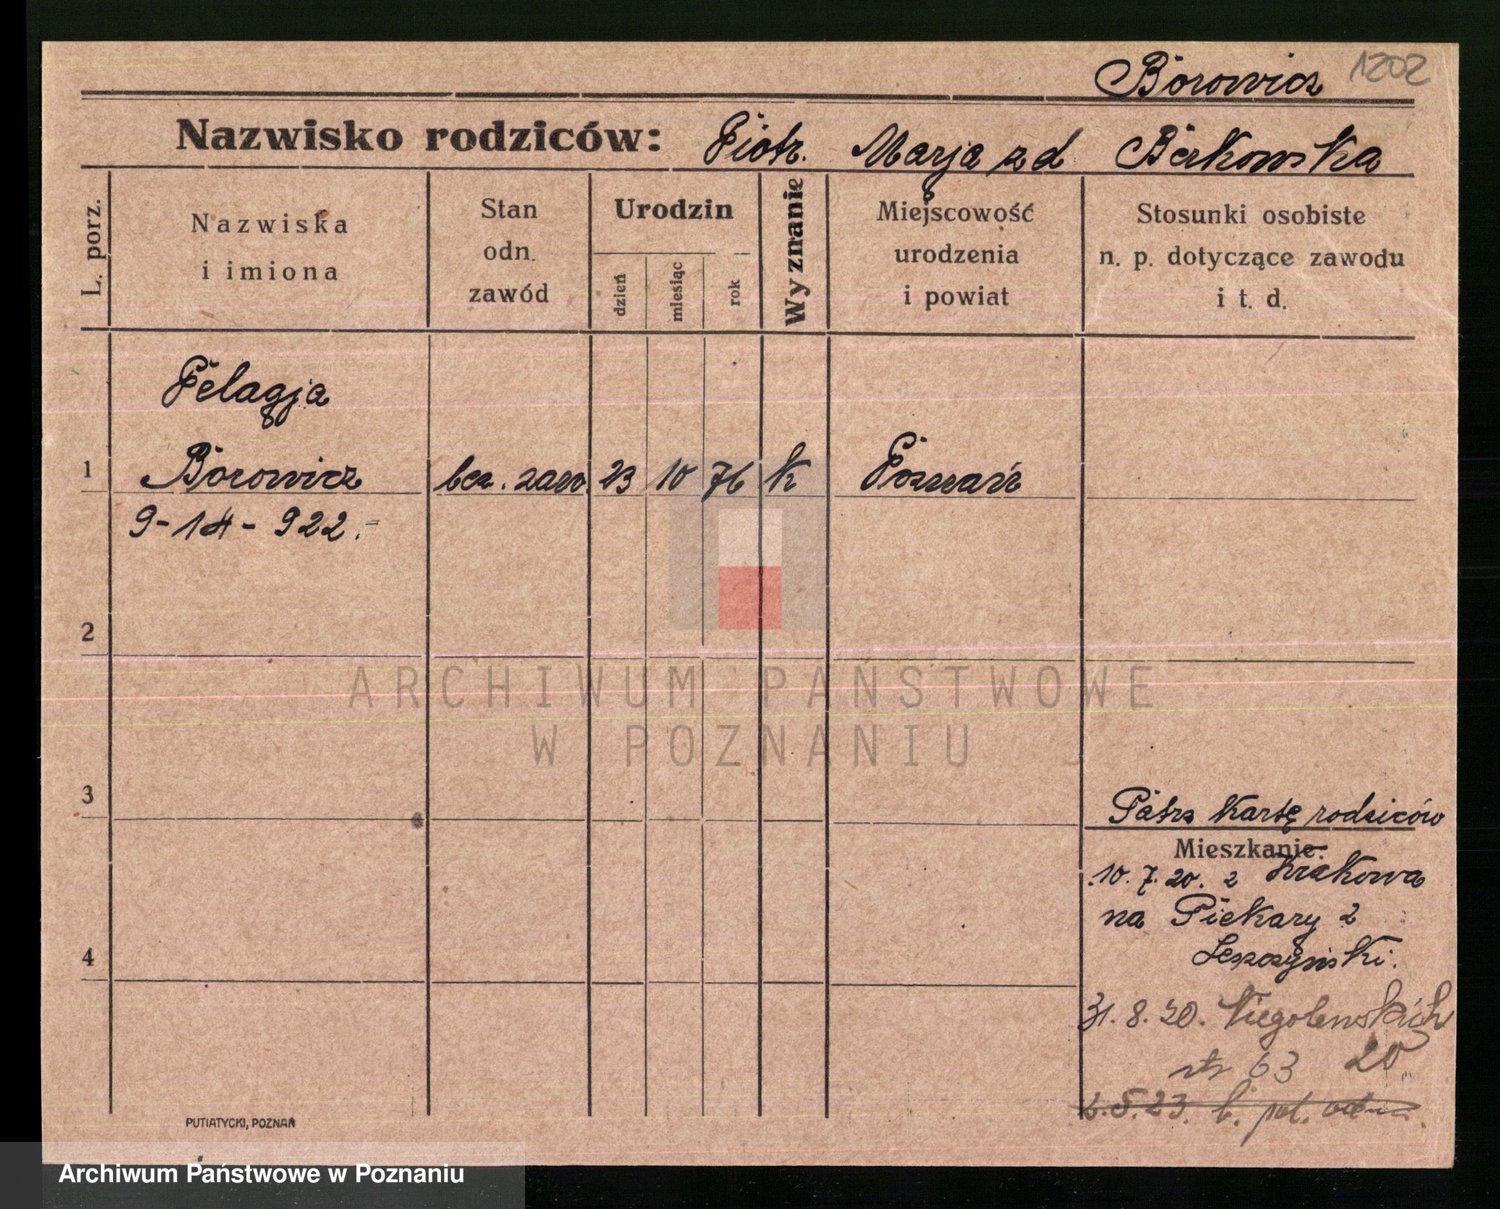 Borowicz 1202
Nazwisko rodziców: Piotr. Marja z d Berkowska
L. porz.
Nazwiska
i imiona
Stan
odn.
zawód
Urodzin
dzień
miesiąc
rok
Wyznanie
Miejscowość
urodzenia
i powiat
Stosunki osobiste
n. p. dotyczące zawodu
i t. d.
Pelagja
1 Borowicz bez. zaw. 23 10 76 k Poznań
922.
2
ARCHIWUM PAŃSTWOWE
W POZNANIU
3
Patrz kartę rodziców
Mieszkanie:
10. 7. 20. z Krakowa
na Piekary 2
Leszczyński.
4
31. 8. 20. Niegolewskich
20
63
23.
PUTIATYCKI, POZNAŃ
Archiwum Państwowe w Poznaniu